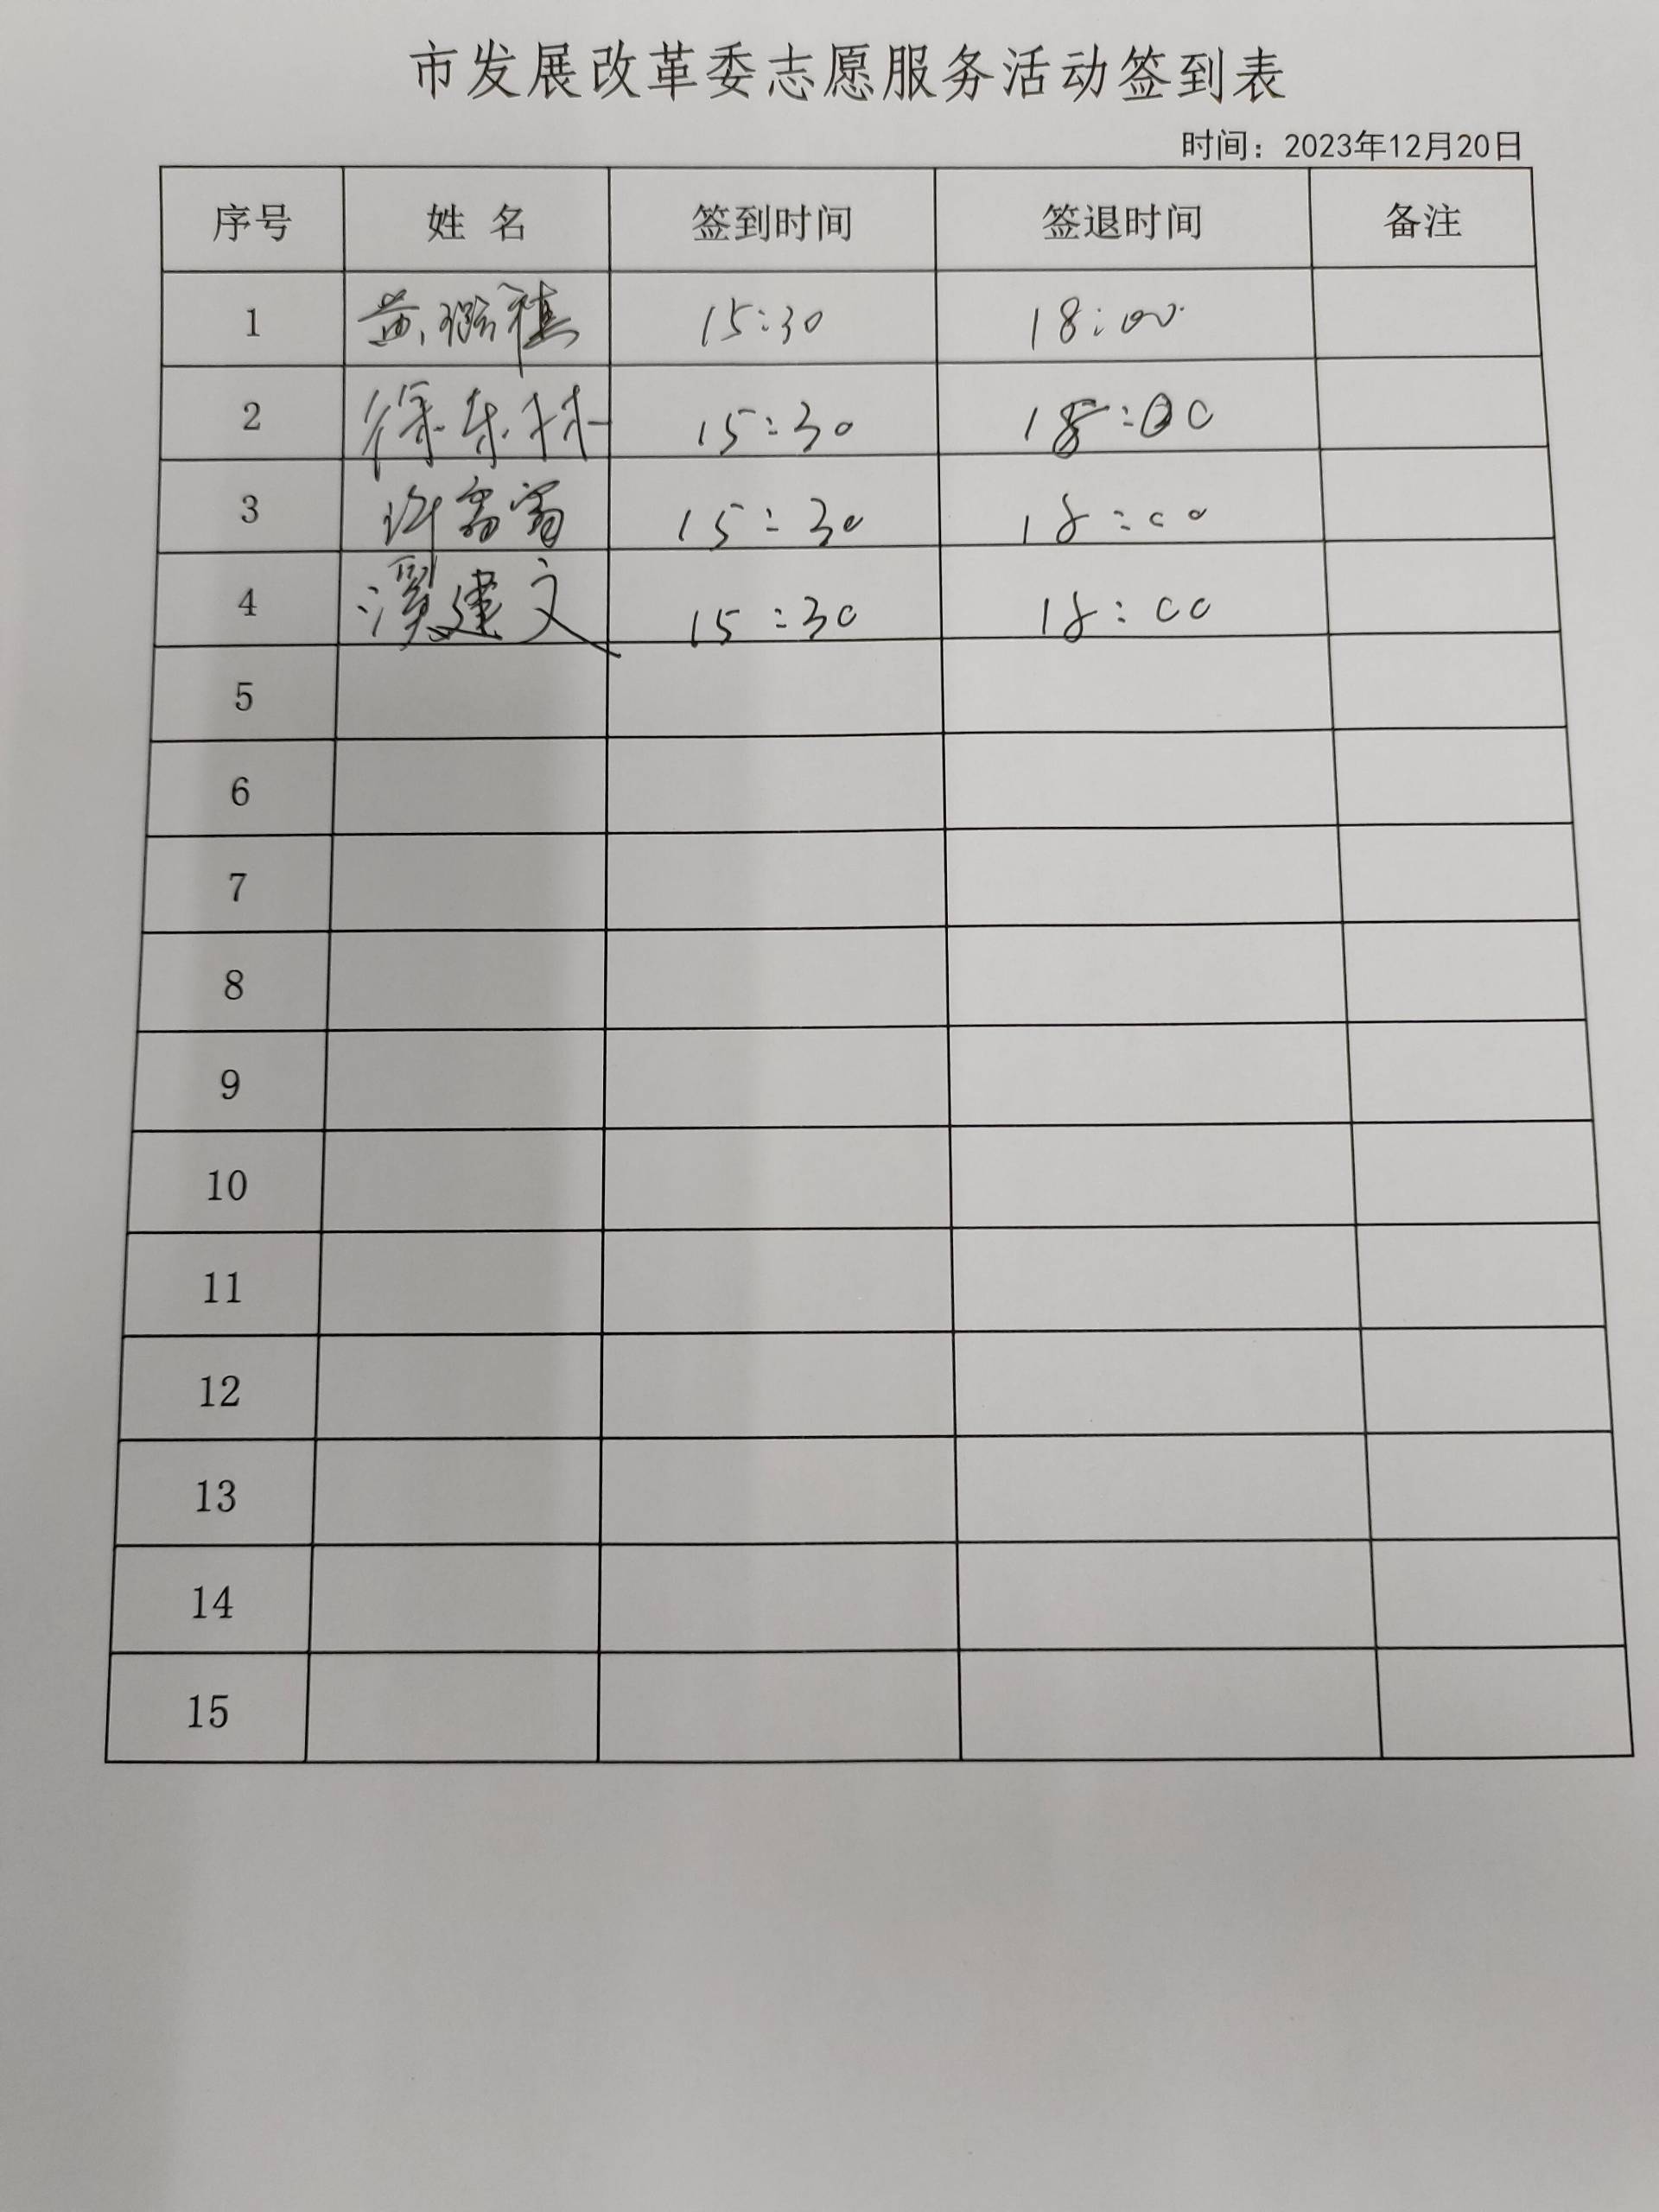 市发展改革委志愿服务活动签到表
时间：2023年12月20日
序号 姓 名 签到时间 签退时间 备注
1 黄 15:30 18:00
2 徐东林 15:30 18:00
3 许 15:30 18:00
4 建文 15:30 18:00
5
6
7
8
9
10
11
12
13
14
15